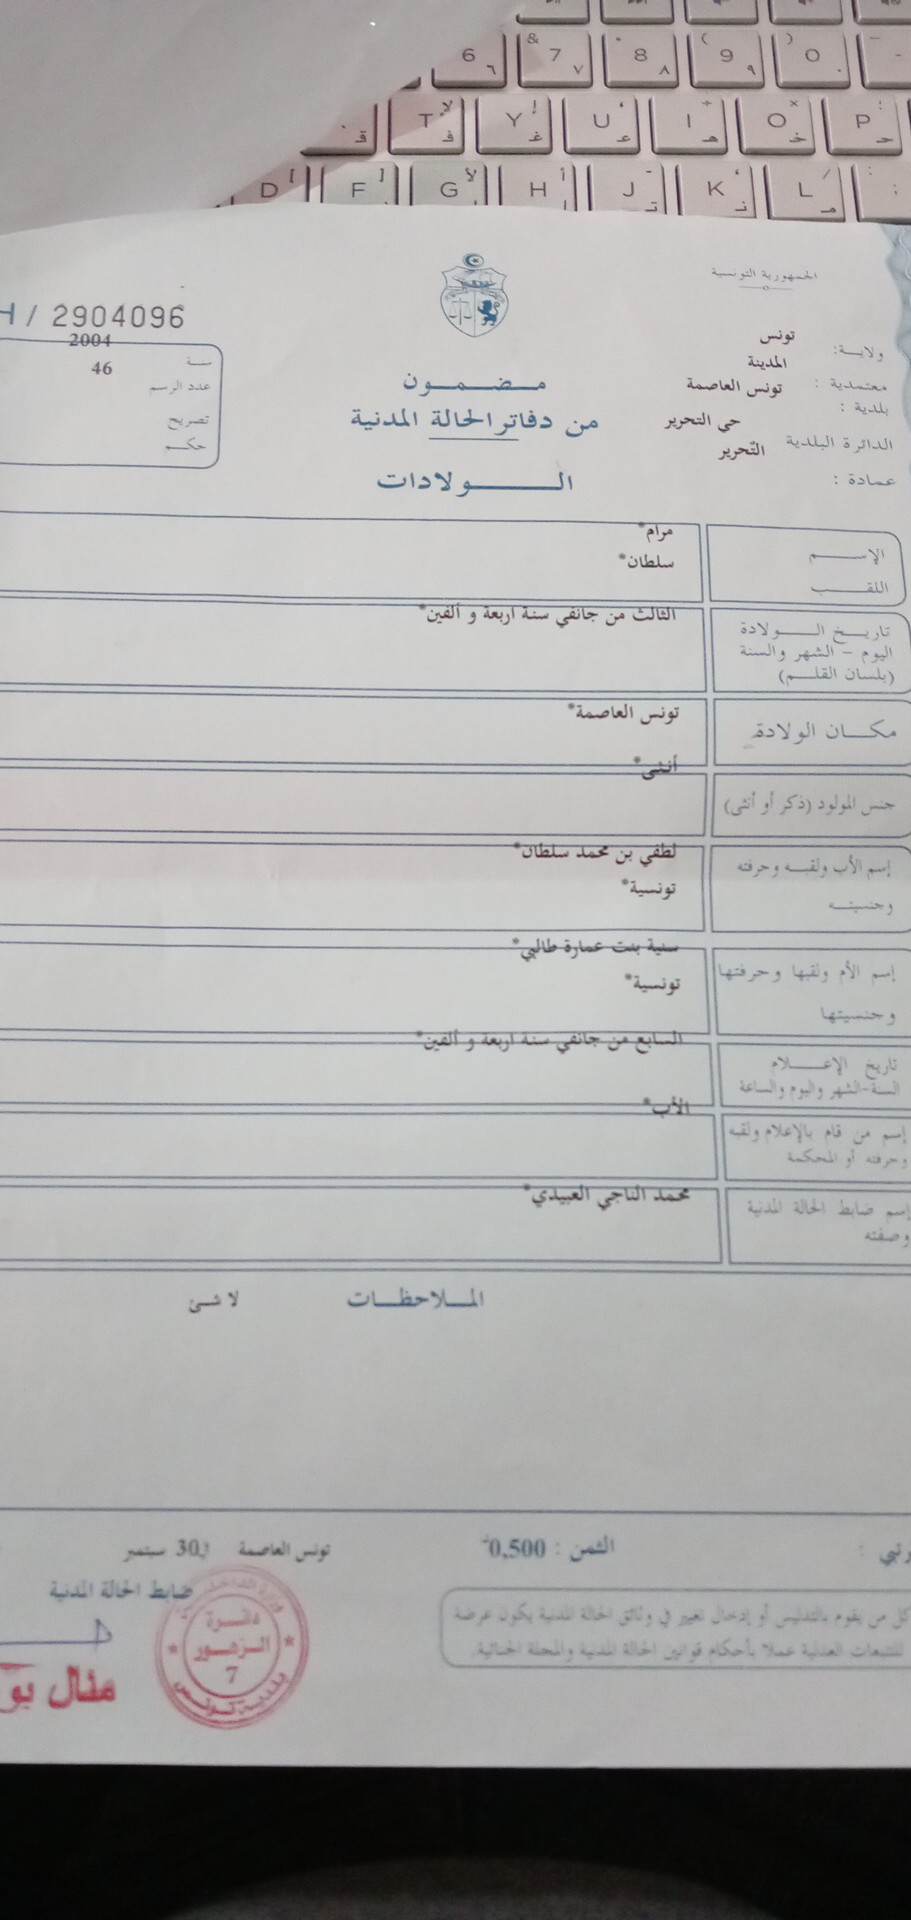 & 6 ٦ 7 ٧ * 8 ٨ ( 9 ٩ ) 0
ق T ف Y غ U ع I ه O خ P ح
D F G H J ت K ن L م
الجمهورية التونسية
H / 2904096
2004
سنة
46
عدد الرسم
تصريح
حكم
ولاية: تونس
معتمدية : المدينة
بلدية : تونس العاصمة
الدائرة البلدية حي التحرير
عمادة : التّحرير
مضمون
من دفاتر الحالة المدنية
الولادات
الإسم مرام*
اللقب سلطان*
تاريخ الولادة الثالث من جانفي سنة اربعة و ألفين*
اليوم - الشهر والسنة
(بلسان القلم)
مكان الولادة تونس العاصمة*
جنس المولود (ذكر أو أنثى) أنثى*
إسم الأب ولقبه وحرفته لطفي بن محمد سلطان*
وجنسيته تونسية*
إسم الأم ولقبها وحرفتها سنية بنت عمارة طالبي*
وجنسيتها تونسية*
تاريخ الإعلام السابع من جانفي سنة اربعة و ألفين*
السنة-الشهر واليوم والساعة
إسم من قام بالإعلام ولقبه الأب*
وحرفته أو المحكمة
إسم ضابط الحالة المدنية محمد الناجي العبيدي*
وصفته
الملاحظات لا شئ
الثمن : 0,500
تونس العاصمة 30 سبتمبر
ضابط الحالة المدنية
كل من يقوم بالتدليس أو إدخال تغيير في وثائق الحالة المدنية يكون عرضة
للتتبعات العدلية عملا بأحكام قوانين الحالة المدنية والمجلة الجنائية.
دائرة
الزهور
7
بلدية تونس
منال